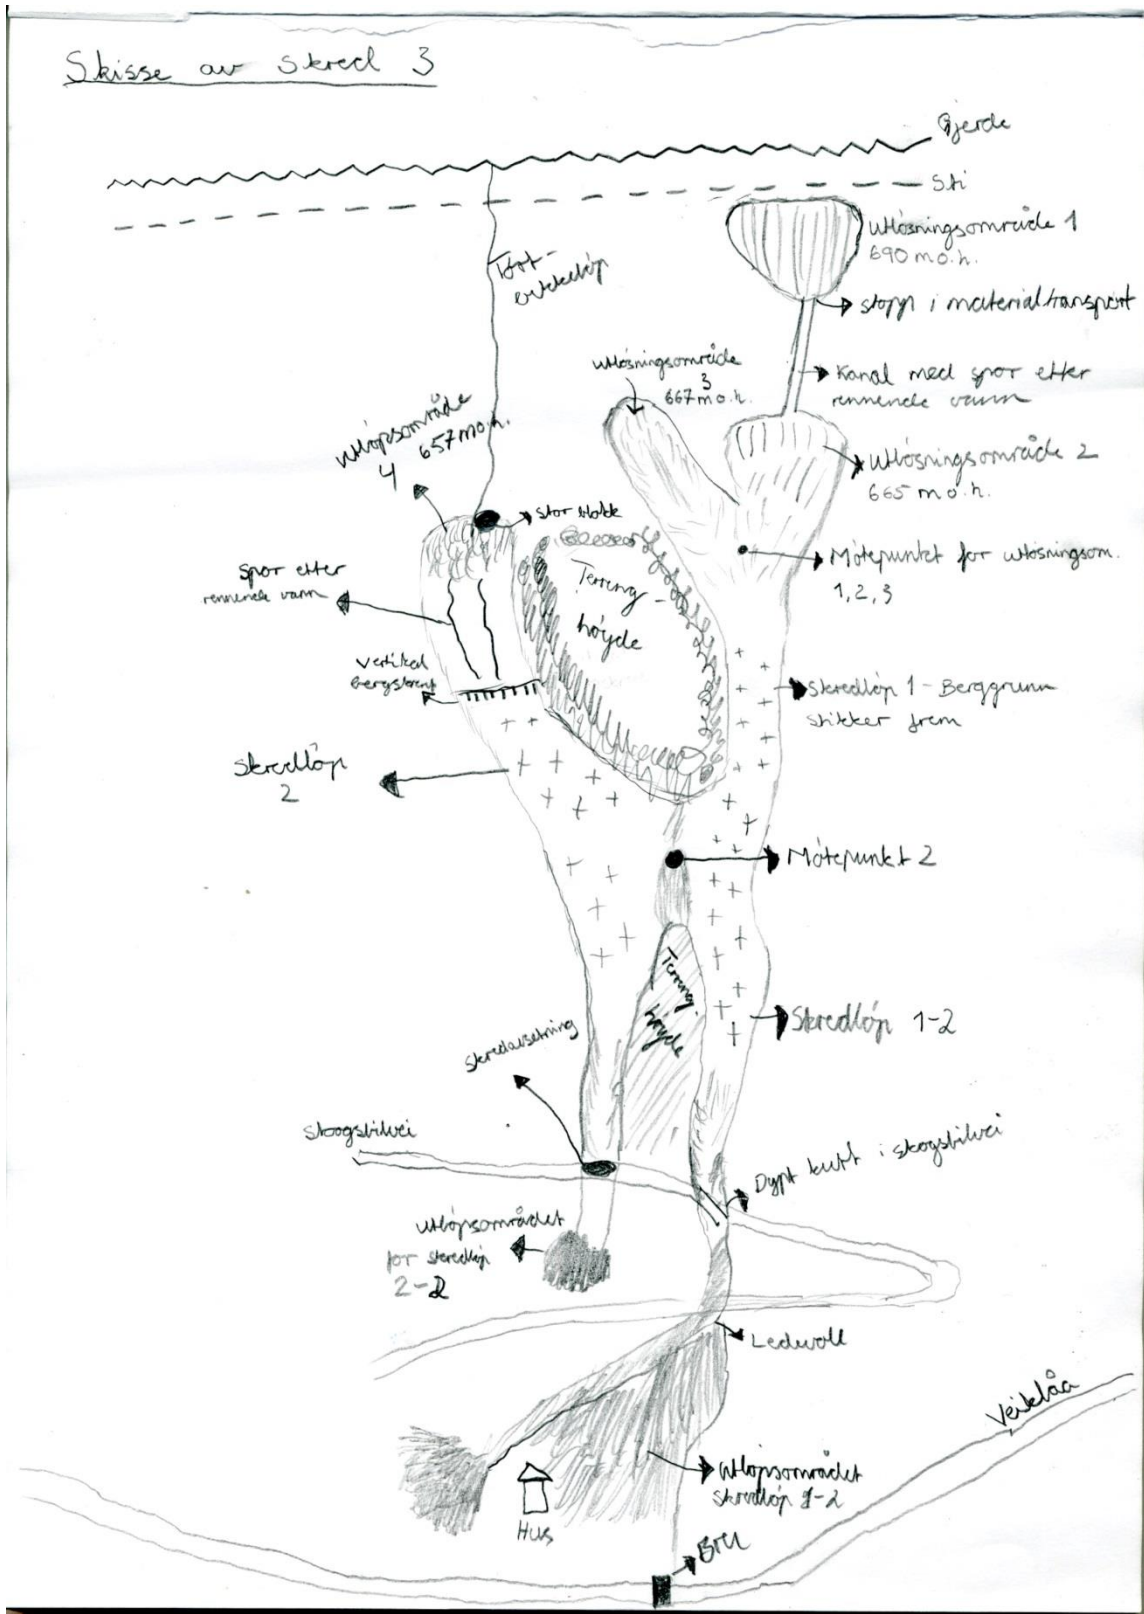 Skisse av skred 3
Gjerde
Sti
Utløsningsområde 1
690 m.o.h.
Tørt-
bekkeløp
stopp i materialtransport
Utløsningsområde
3
667 m.o.h.
Kanal med spor etter
rennende vann
Utløpsområde
4 657 m.o.h.
Utløsningsområde 2
665 m.o.h.
Stor blokk
Møtepunkt for utløsningsom.
1,2,3
Spor etter
rennende vann
Terreng-
høyde
Vertikal
bergskrent
Skredløp 1 - Berggrunn
stikker frem
Skredløp
2
Møtepunkt 2
Terreng-
høyde
Skredløp 1-2
Skredavsetning
Skogsbilvei
Dypt kutt i skogsbilvei
Utløpsområdet
for skredløp
2-2
Ledevoll
Veiklåa
Utløpsområdet
Skredløp 1-2
Hus
Bru